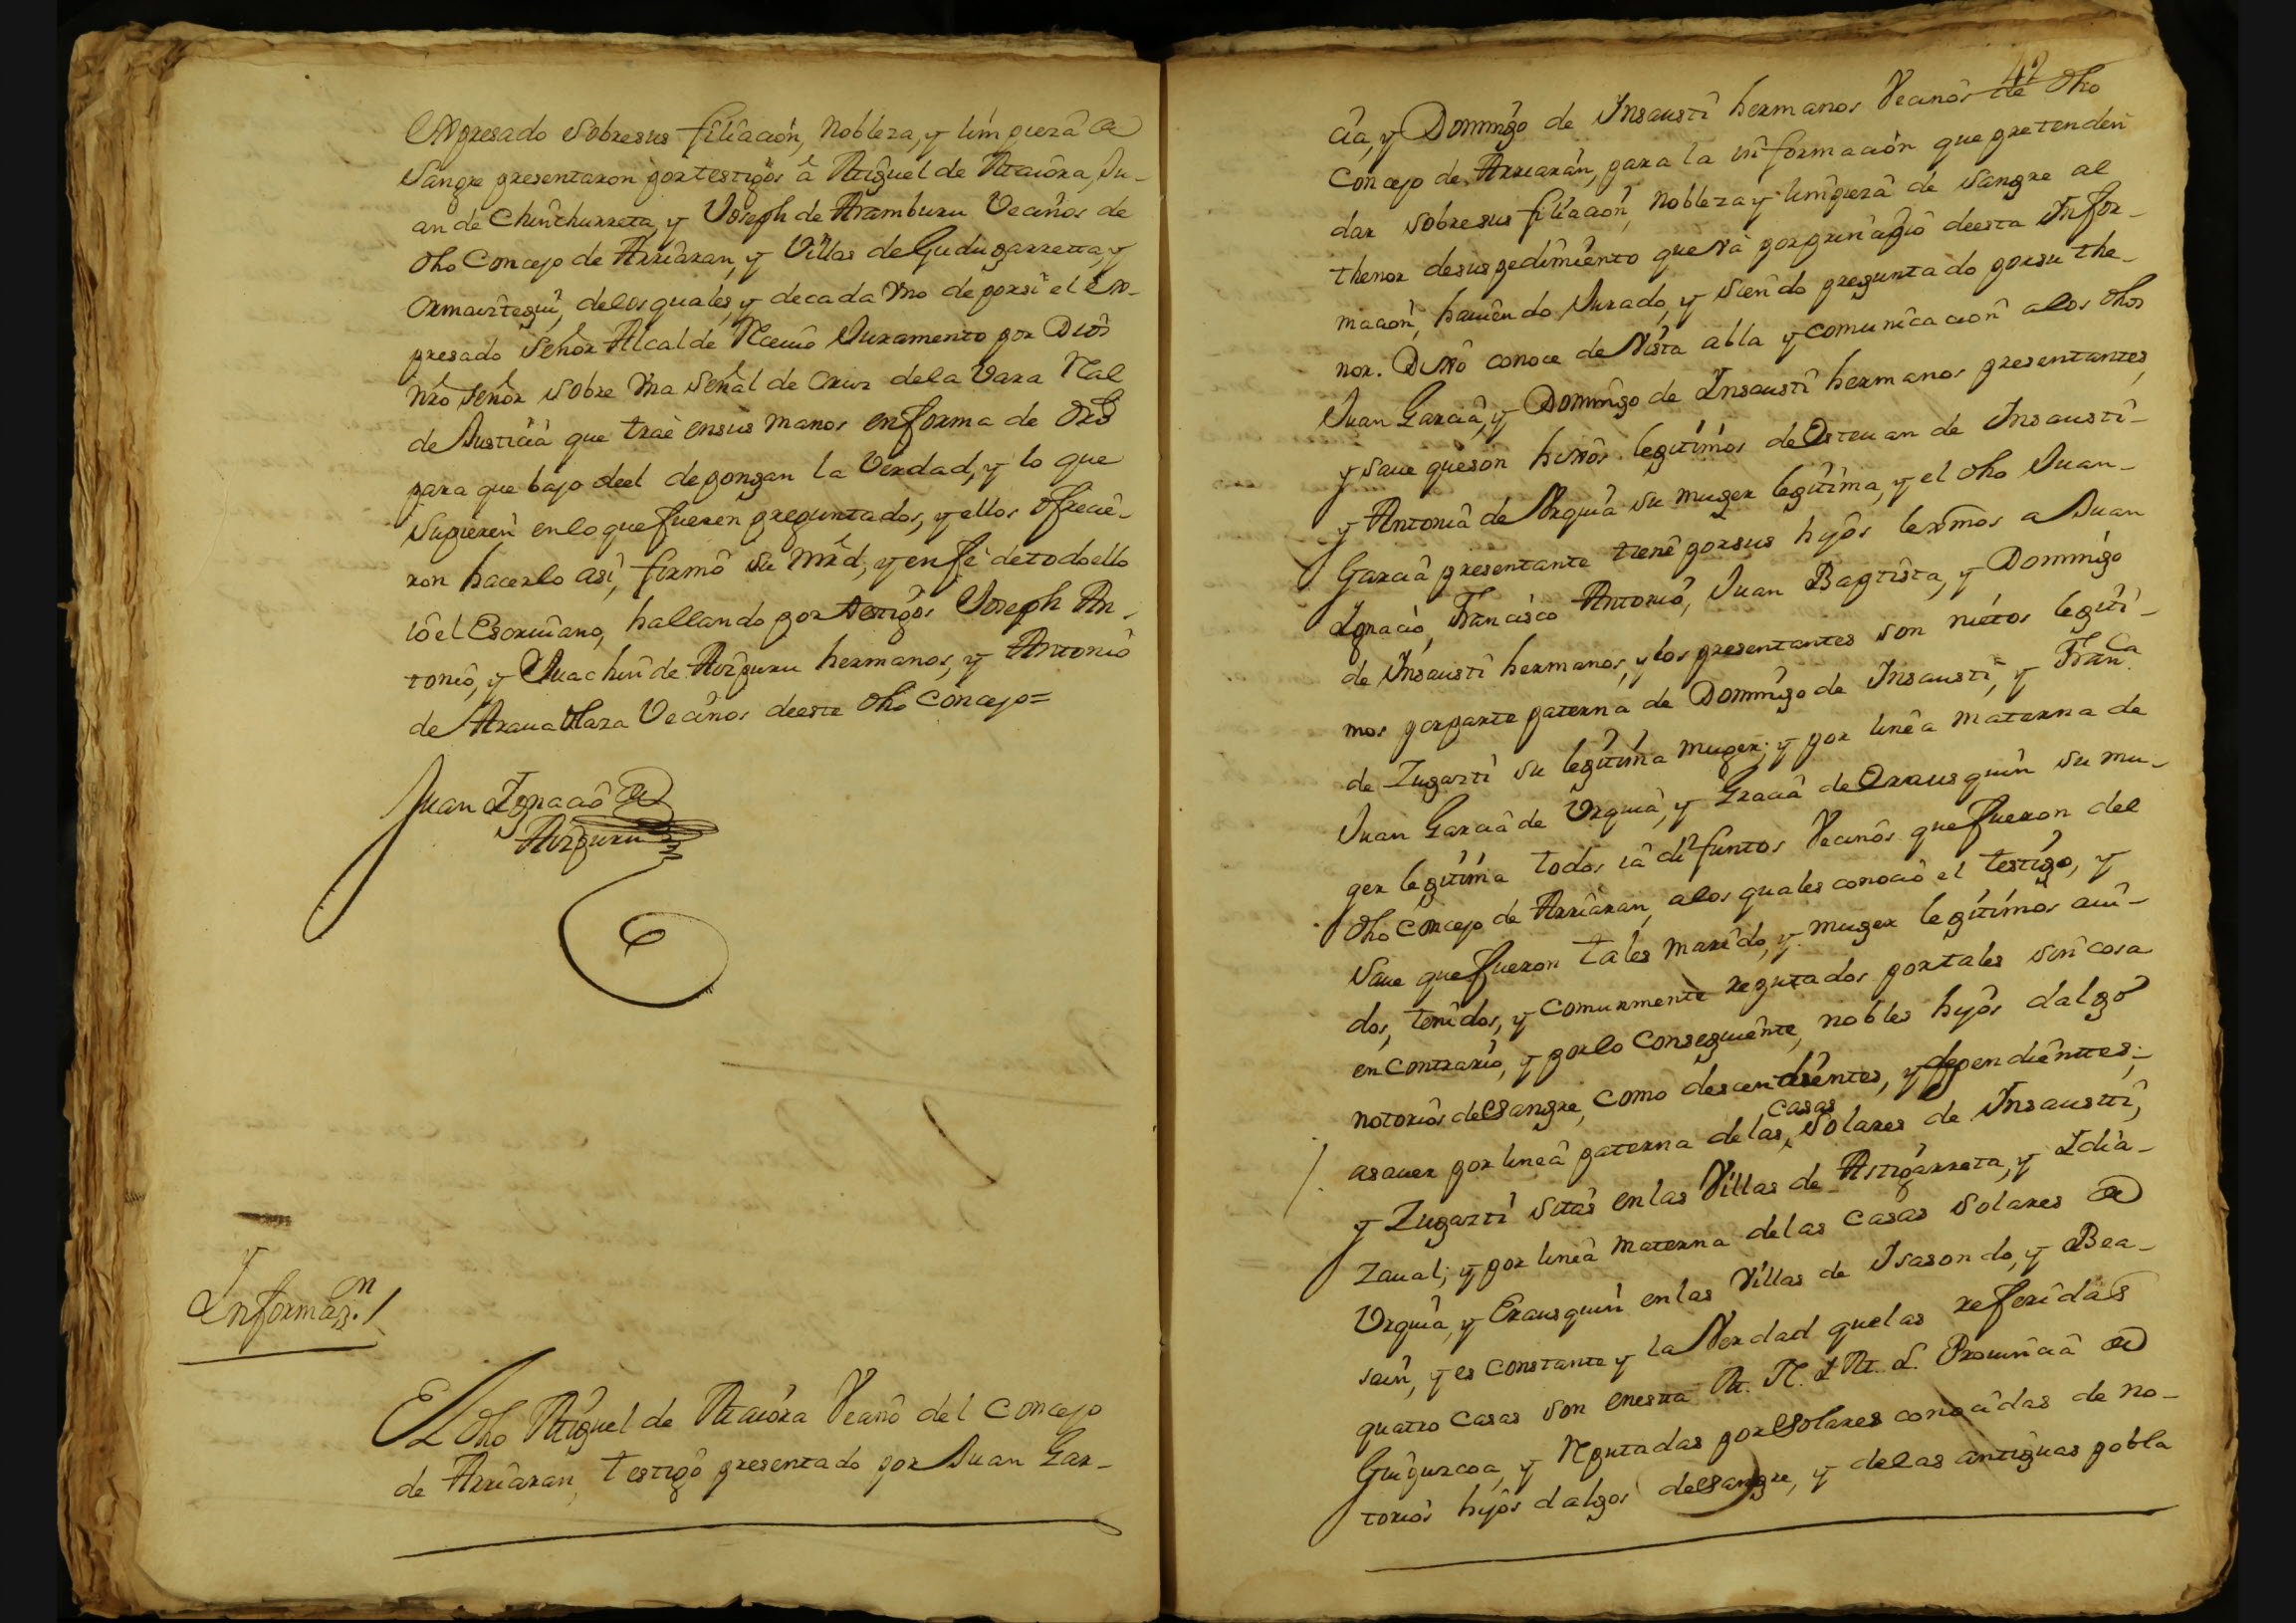 Expresado sobresus filiacion, Nobleza, y limpieza de
Sangre presentaron portestigos â Miguel de Maiora, Ju-
an de Chinchurreta, y Joseph de Aramburu Vecinos de
dho Concejo de Arriaran, y Villas de Gudugarreta, y
Ormaiztegui, delosquales, y decada Vno deporsi el ex-
presado Señor Alcalde Rceuio Juramento por Dios
Nrô Señor sobre Vna Señal de Cruz dela Vara Ral
de Justicia que trae ensus manos enforma de dro
para que bajo deel depongan la Verdad, y lo que
Supieren enloquefueren preguntados, y ellos ofrecie-
ron hacerlo asi, firmô su Mrd, y enfê detodoello
iô el Escriuano, hallando por testigos Joseph An-
tonio, y Juachin de Aizpuru hermanos, y Antonio
de Arana Vecinos deeste dho Concejo=
Juan Ignacio de
Aizpuru
Y
Informaz.n 1
El dho Miguel de Maiora Vecino del Concejo
de Arriaran, testigo presentado por Juan Gar-
42
cia, y Domingo de Insausti hermanos Vecinos de dho
Concejo de Arriaran, para la informacion que pretenden
dar sobresus filiacion, Nobleza y limpieza de Sangre al
thenor desuspedimiento queva porprincipio deesta Infor-
macion, hauiendo Jurado, y siendo preguntado porsu the-
nor. Dixo conoce de Vista abla y comunicacion alos dhos
Juan Garcia, y Domingo de Insausti hermanos presentantes,
y saue queson hixos legitimos deEsteuan de Insausti-
y Antonia de Vrquia su muger legitima, y el dho Juan-
Garcia presentante tiene porsus hijos lexmos a Juan
Ignacio, Francisco Antonio, Juan Baptista, y Domingo
de Insausti hermanos, y los presentantes son nietos legiti-
mos porparte paterna de Domingo de Insausti, y Fran.ca
de Zugazti su legitima muger; y por linea materna de
Juan Garcia de Vrquia, y Gracia deErausquin su mu-
ger legitima todos iâ difuntos Vecinos quefueron del
dho Concejo de Arriaran, alos quales conocio el testigo, y
Saue quefueron tales marido, y muger legitimos aui-
dos, tenidos, y comunmente reputados portales sin cosa
en contrario, y porlo Conseguiente, nobles hijos dalgo
notorios deSangre, como descendientes, y dependienttes;
asauer por linea paterna delas casas Solares de Insaustti,
y Zugazti sitas enlas Villas de Astigarreta, y Idia-
zaual; y por linea materna delas Casas Solares de
Vrquia, y Erausquin enlas Villas de Isasondo, y Bea-
sain, y es constante y la Verdad quelas referidas
quatro Casas son enesta M. N. Y M. L. Prouincia de
Guipuzcoa, y Rputadas porSolares conocidas de no-
torios hijos dalgos deSangre, y delas antiguas pobla